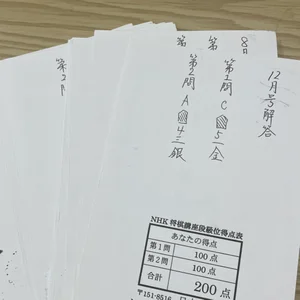 12月号解答
第1問 C 5一金
第2問 A 4三銀
NHK 将棋講座段級位得点表
あなたの得点
第1問 100点
第2問 100点
合計 200点
〒151-8516